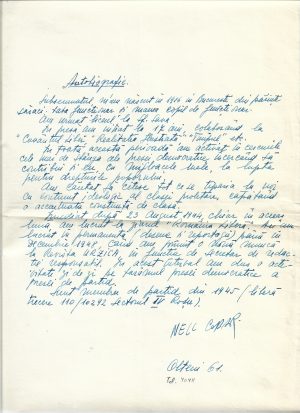 Autobiografie.
Subsemnatul, m-am născut în 1910 în București din părinți
săraci: tata funcționar și mama copil de
Am urmat liceul la Sf. Sava.
În presă am intrat la 17 ani, colaborând la
"Cuvântul liber" "Realitatea Ilustrată" "Timpul" etc.
În toată această perioadă am activat în cercurile
cele mai de stânga ale presei democrate, încercând să
contribui și eu, cu mijloacele mele, la lupta
pentru drepturile poporului.
Am căutat să citesc tot ce se tipărea la noi
cu conținut ideologic al clasei muncitoare, căpătând
o accentuată conștiință de clasă.
Imediat după 23 August 1944, chiar în aceea
lună, am lucrat la ziarul "România Liberă". Aci am
lucrat în permanență (desene și reportagii) până în
Decembrie 1948, când am primit o nouă muncă
la Revista URZICA, în funcția de secretar de redac-
ție responsabil. În acest timp am dus o acti-
vitate zi de zi pe tărâmul presei democratice a
presei de partid.
Sunt membru de partid din 1945
110/10292 sectorul IV Roșu).
NELL COBAR
Olteni 61.